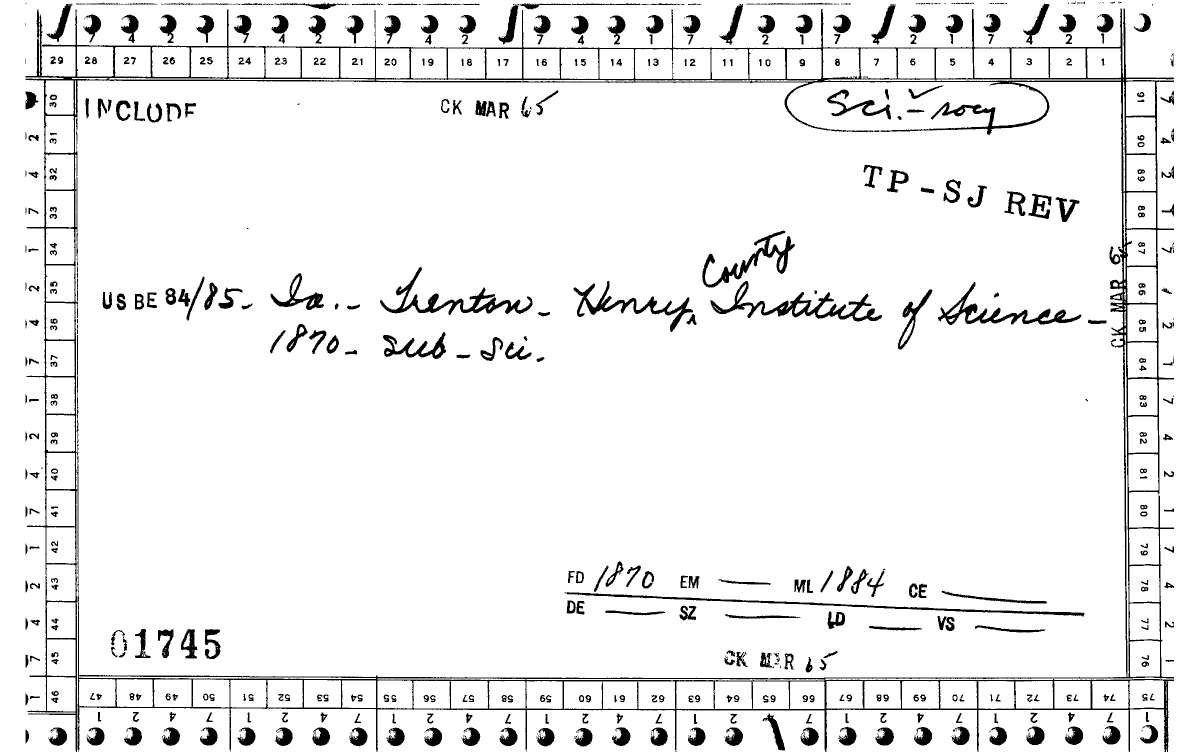 7 4 2 1 7 4 2 1 7 4 2 7 4 2 1 7 2 1 7 4 2 1 7 4 2 1
29 28 27 26 25 24 23 22 21 20 19 18 17 16 15 14 13 12 11 10 9 8 7 6 5 4 3 2 1
INCLUDE CK MAR 65 Sci. - socy
TP-SJ REV
County
US BE 84/85- Ia. - Trenton - Henry ^ Institute of Science -
1870 - sub - Sci.
CK MAR 65
FD 1870 EM — ML 1884 CE —
DE — SZ — LD — VS —
01745
CK MAR 65
30 31 32 33 34 35 36 37 38 39 40 41 42 43 44 45 46
91 90 89 88 87 86 85 84 83 82 81 80 79 78 77 76 75
47 48 49 50 51 52 53 54 55 56 57 58 59 60 61 62 63 64 65 66 67 68 69 70 71 72 73 74
1 2 4 7 1 2 4 7 1 2 4 7 1 2 4 7 1 2 7 1 2 4 7 1 2 4 7 1